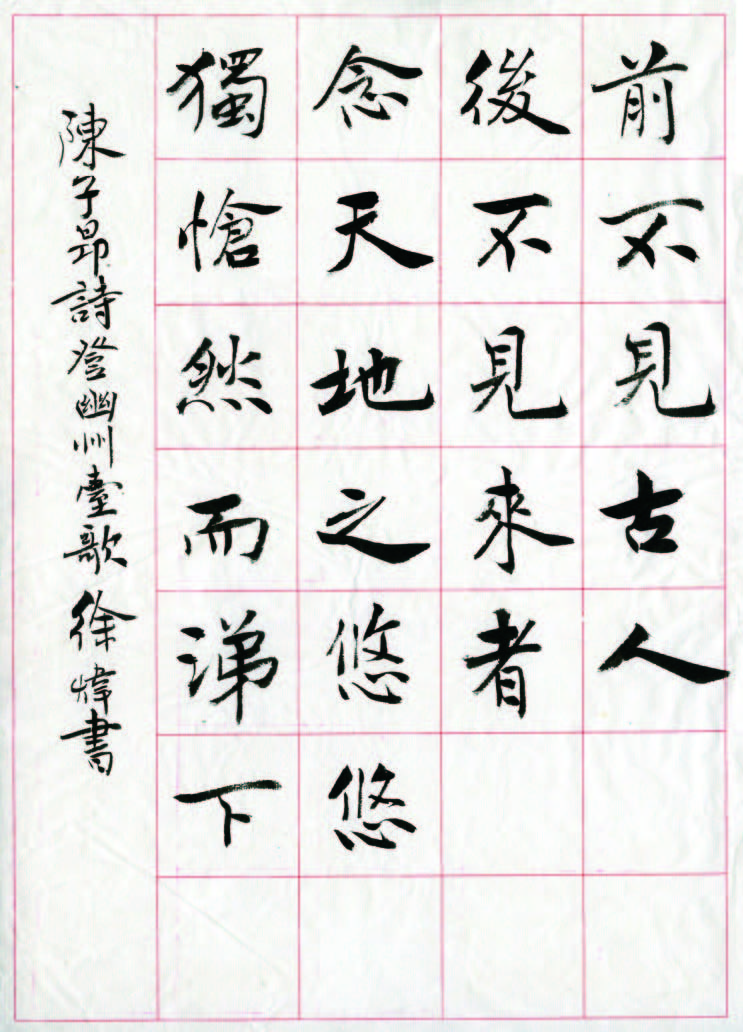 前不見古人
後不見來者
念天地之悠悠
獨愴然而涕下
陳子昂詩登幽州臺歌徐煒書